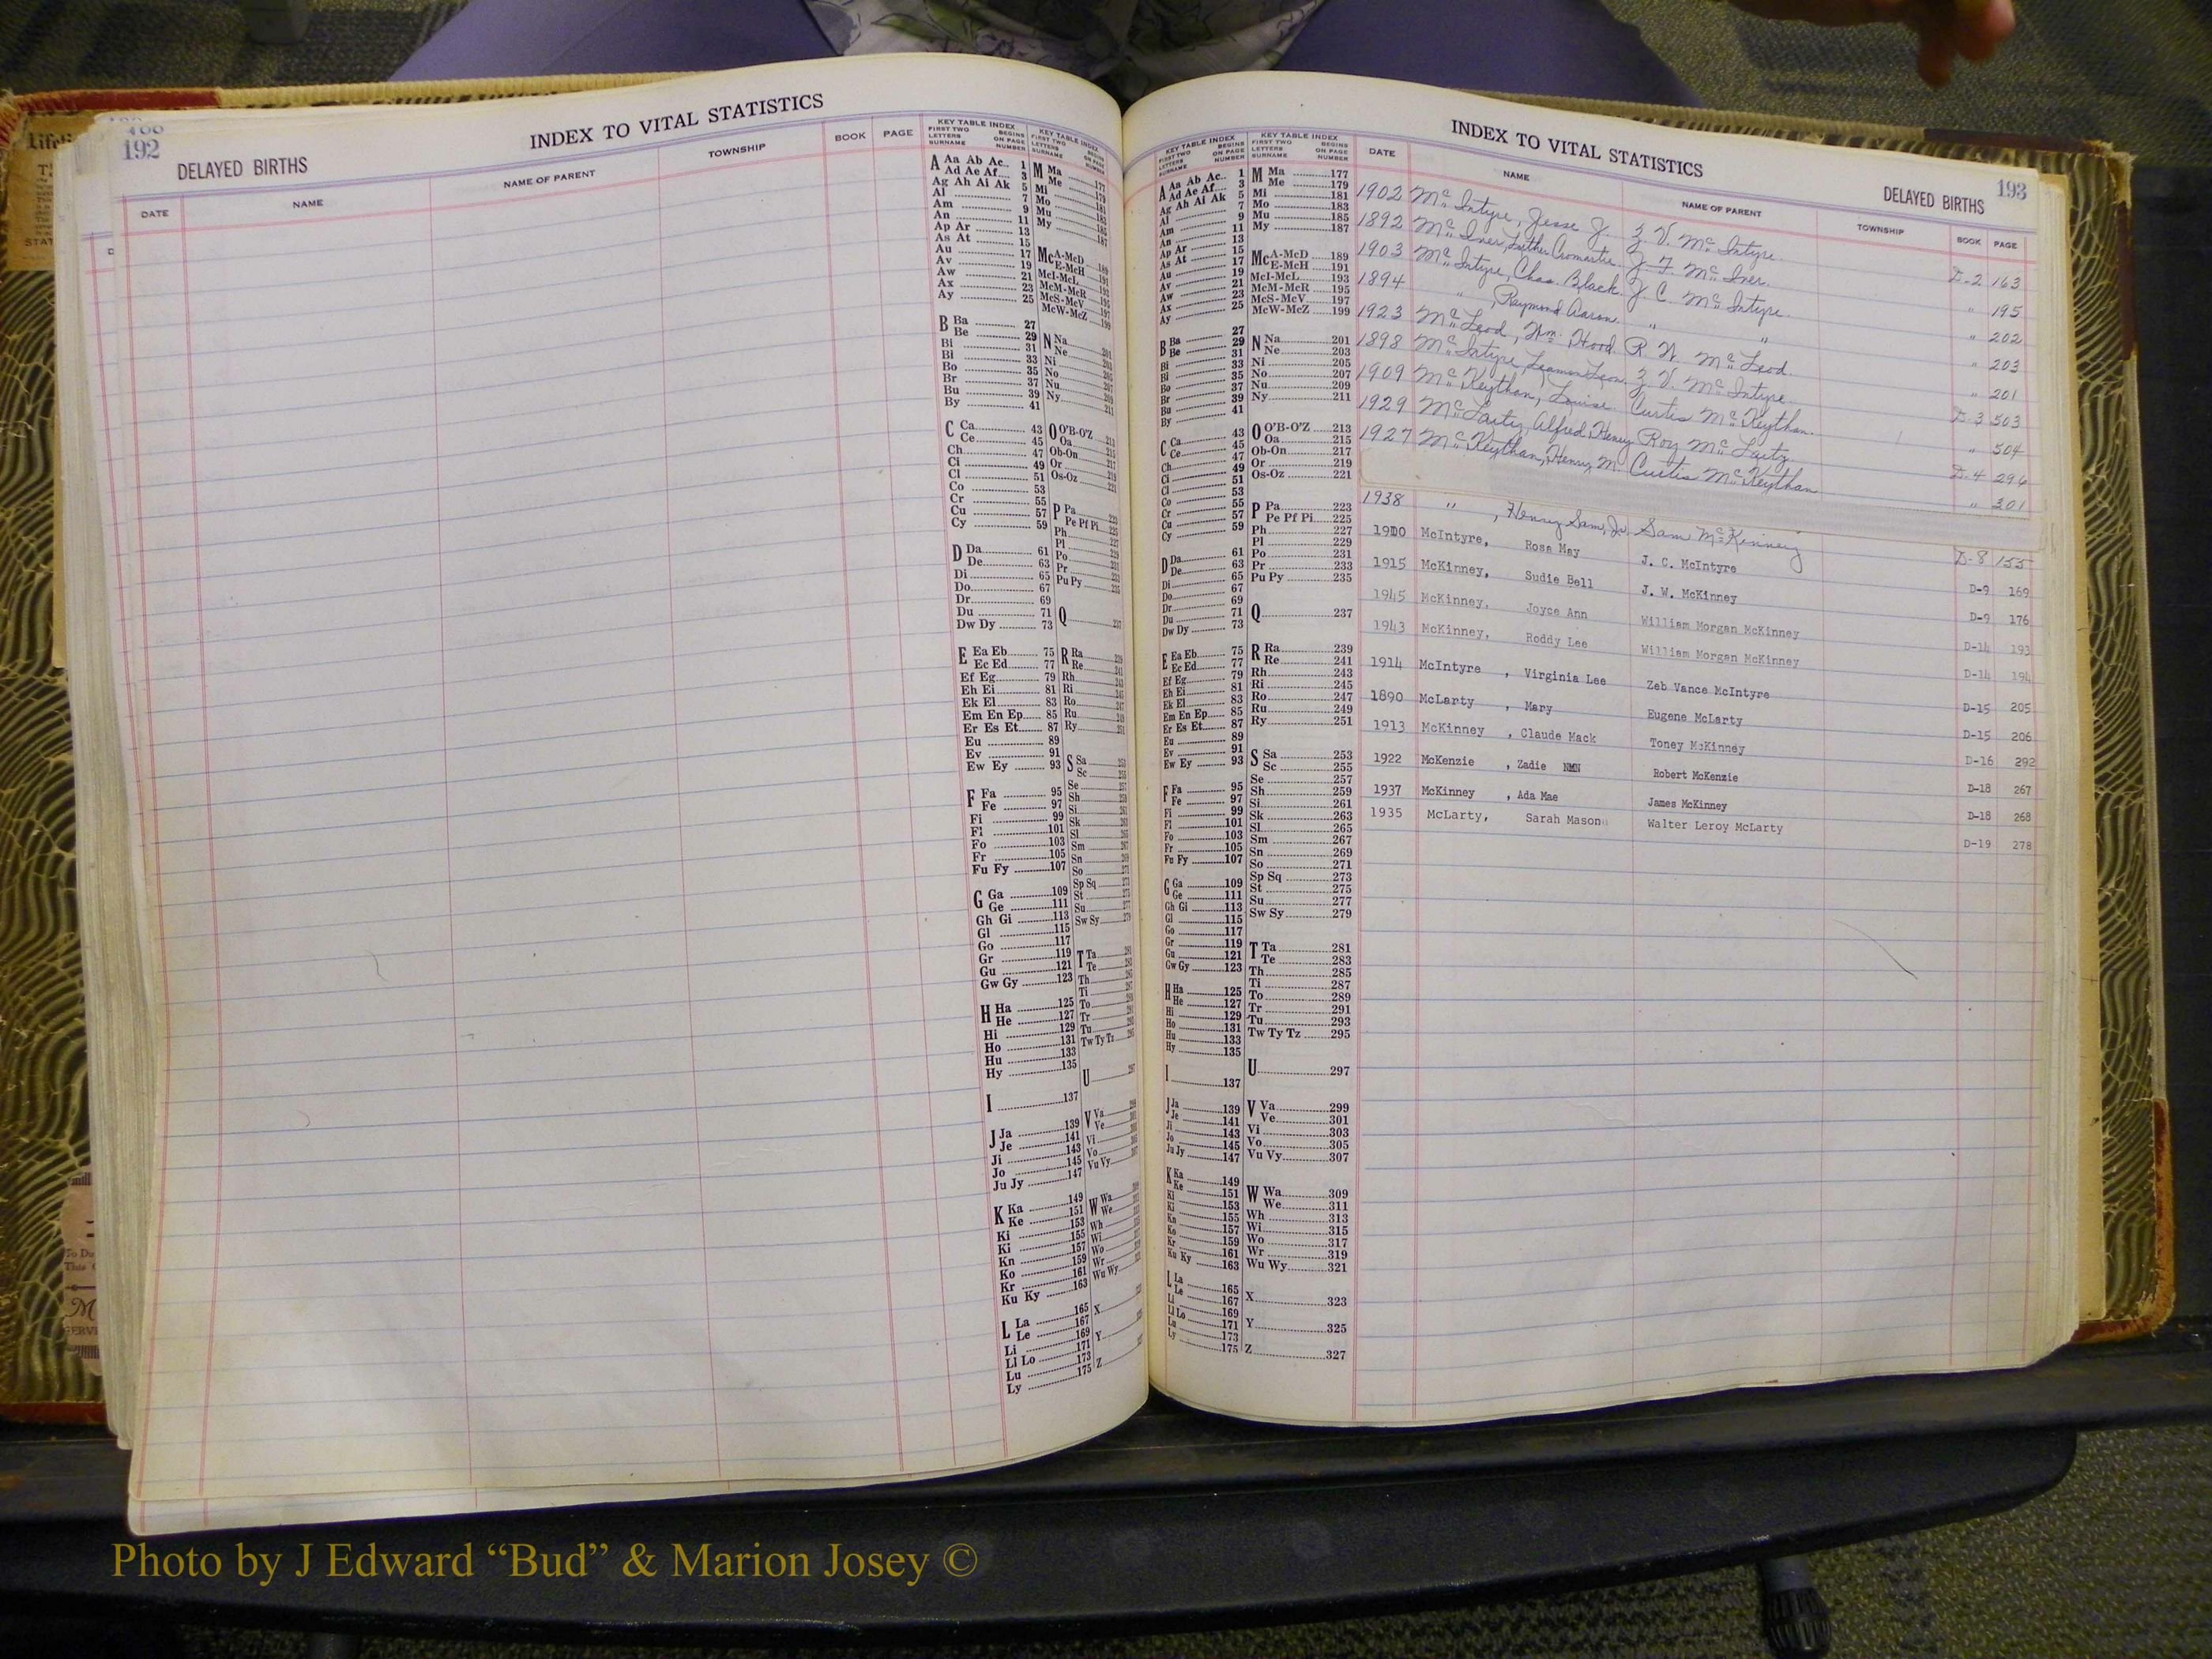 192
INDEX TO VITAL STATISTICS
DELAYED BIRTHS
DATE NAME NAME OF PARENT TOWNSHIP BOOK PAGE
KEY TABLE INDEX
FIRST TWO LETTERS SURNAME BEGINS ON PAGE NUMBER
A Aa Ab Ac.. 1
Ad Ae Af.... 3
Ag Ah Ai Ak 5
Al 7
Am 9
An 11
Ap Ar 13
As At 15
Au 17
Av 19
Aw 21
Ax 23
Ay 25
B Ba 27
Be 29
Bi 31
Bl 33
Bo 35
Br 37
Bu 39
By 41
C Ca 43
Ce 45
Ch 47
Ci 49
Cl 51
Co 53
Cr 55
Cu 57
Cy 59
D Da 61
De 63
Di 65
Do 67
Dr 69
Du 71
Dw Dy 73
E Ea Eb 75
Ec Ed 77
Ef Eg 79
Eh Ei 81
Ek El 83
Em En Ep 85
Er Es Et 87
Eu 89
Ev 91
Ew Ey 93
F Fa 95
Fe 97
Fi 99
Fl 101
Fo 103
Fr 105
Fu Fy 107
G Ga 109
Ge 111
Gh Gi 113
Gl 115
Go 117
Gr 119
Gu 121
Gw Gy 123
H Ha 125
He 127
Hi 129
Ho 131
Hu 133
Hy 135
I 137
J Ja 139
Je 141
Ji 143
Jo 145
Ju Jy 147
K Ka 149
Ke 151
Ki 153
Kl 155
Kn 157
Ko 159
Kr 161
Ku Ky 163
L La 165
Le 167
Li 169
Ll Lo 171
Lu 173
Ly 175
INDEX TO VITAL STATISTICS
193
DELAYED BIRTHS
KEY TABLE INDEX
FIRST TWO LETTERS SURNAME BEGINS ON PAGE NUMBER
M Ma 177
Me 179
Mi 181
Mo 183
Mu 185
My 187
Mc A-McD 189
E-McH 191
McI-McL 193
McM-McR 195
McS-McV 197
McW-McZ 199
N Na 201
Ne 203
Ni 205
No 207
Nu 209
Ny 211
O O'B-O'Z 213
Oa 215
Ob-On 217
Or 219
Os-Oz 221
P Pa 223
Pe Pf Pi 225
Ph 227
Pl 229
Po 231
Pr 233
Pu Py 235
Q 237
R Ra 239
Re 241
Rh 243
Ri 245
Ro 247
Ru 249
Ry 251
S Sa 253
Sc 255
Se 257
Sh 259
Si 261
Sk 263
Sl 265
Sm 267
Sn 269
So 271
Sp Sq 273
St 275
Su 277
Sw Sy 279
T Ta 281
Te 283
Th 285
Ti 287
To 289
Tr 291
Tu 293
Tw Ty Tz 295
U 297
V Va 299
Ve 301
Vi 303
Vo 305
Vu Vy 307
W Wa 309
We 311
Wh 313
Wi 315
Wo 317
Wr 319
Wu Wy 321
X 323
Y 325
Z 327
DATE NAME NAME OF PARENT TOWNSHIP BOOK PAGE
1902 McIntyre, Jesse J. Z. V. McIntyre D-2 163
1892 McIver, Luther Cromartie J. F. McIver " 195
1903 McIntyre, Chas. Black J. C. McIntyre " 202
1894 " , Raymond Aaron " " " 203
1923 McLeod, Wm. Hood R. W. McLeod " 201
1898 McIntyre, Leamon Leon Z. V. McIntyre D-3 503
1909 McKeythan, Louise Curtis McKeythan " 504
1929 McLarty, Alfred Henry Roy McLarty D-4 296
1927 McKeythan, Henry M. Curtis McKeythan " 301
1938 " , Henry Sam, Jr. Sam McKenney D-8 155
1900 McIntyre, Rosa May J. C. McIntyre D-9 169
1915 McKinney, Sudie Bell J. W. McKinney D-9 176
1945 McKinney, Joyce Ann William Morgan McKinney D-14 193
1943 McKinney, Roddy Lee William Morgan McKinney D-14 194
1914 McIntyre , Virginia Lee Zeb Vance McIntyre D-15 205
1890 McLarty , Mary Eugene McLarty D-15 206
1913 McKinney , Claude Mack Toney McKinney D-16 292
1922 McKenzie , Zadie NMN Robert McKenzie D-18 267
1937 McKinney , Ada Mae James McKinney D-18 268
1935 McLarty, Sarah Mason Walter Leroy McLarty D-19 278
Photo by J Edward “Bud” & Marion Josey ©